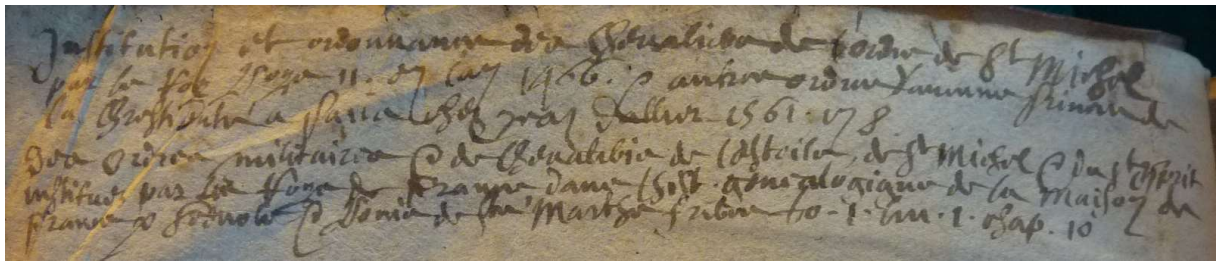 Institution et ordonnance des Chevaliers de l'ordre de St Michel
par le Roy Loys 11. en l'an 1466. & autres ordres
la Chrestienté a Paris chez Jean Dallier 1561. in 8
Des Ordres militaires & de Chevalerie de l'Estoile, de St Michel & du St Esprit
institués par les Roys de France dans l'hist. genealogique de la Maison de
France de & Louis de Ste Marthe freres to. 1. liv. 1. chap. 10